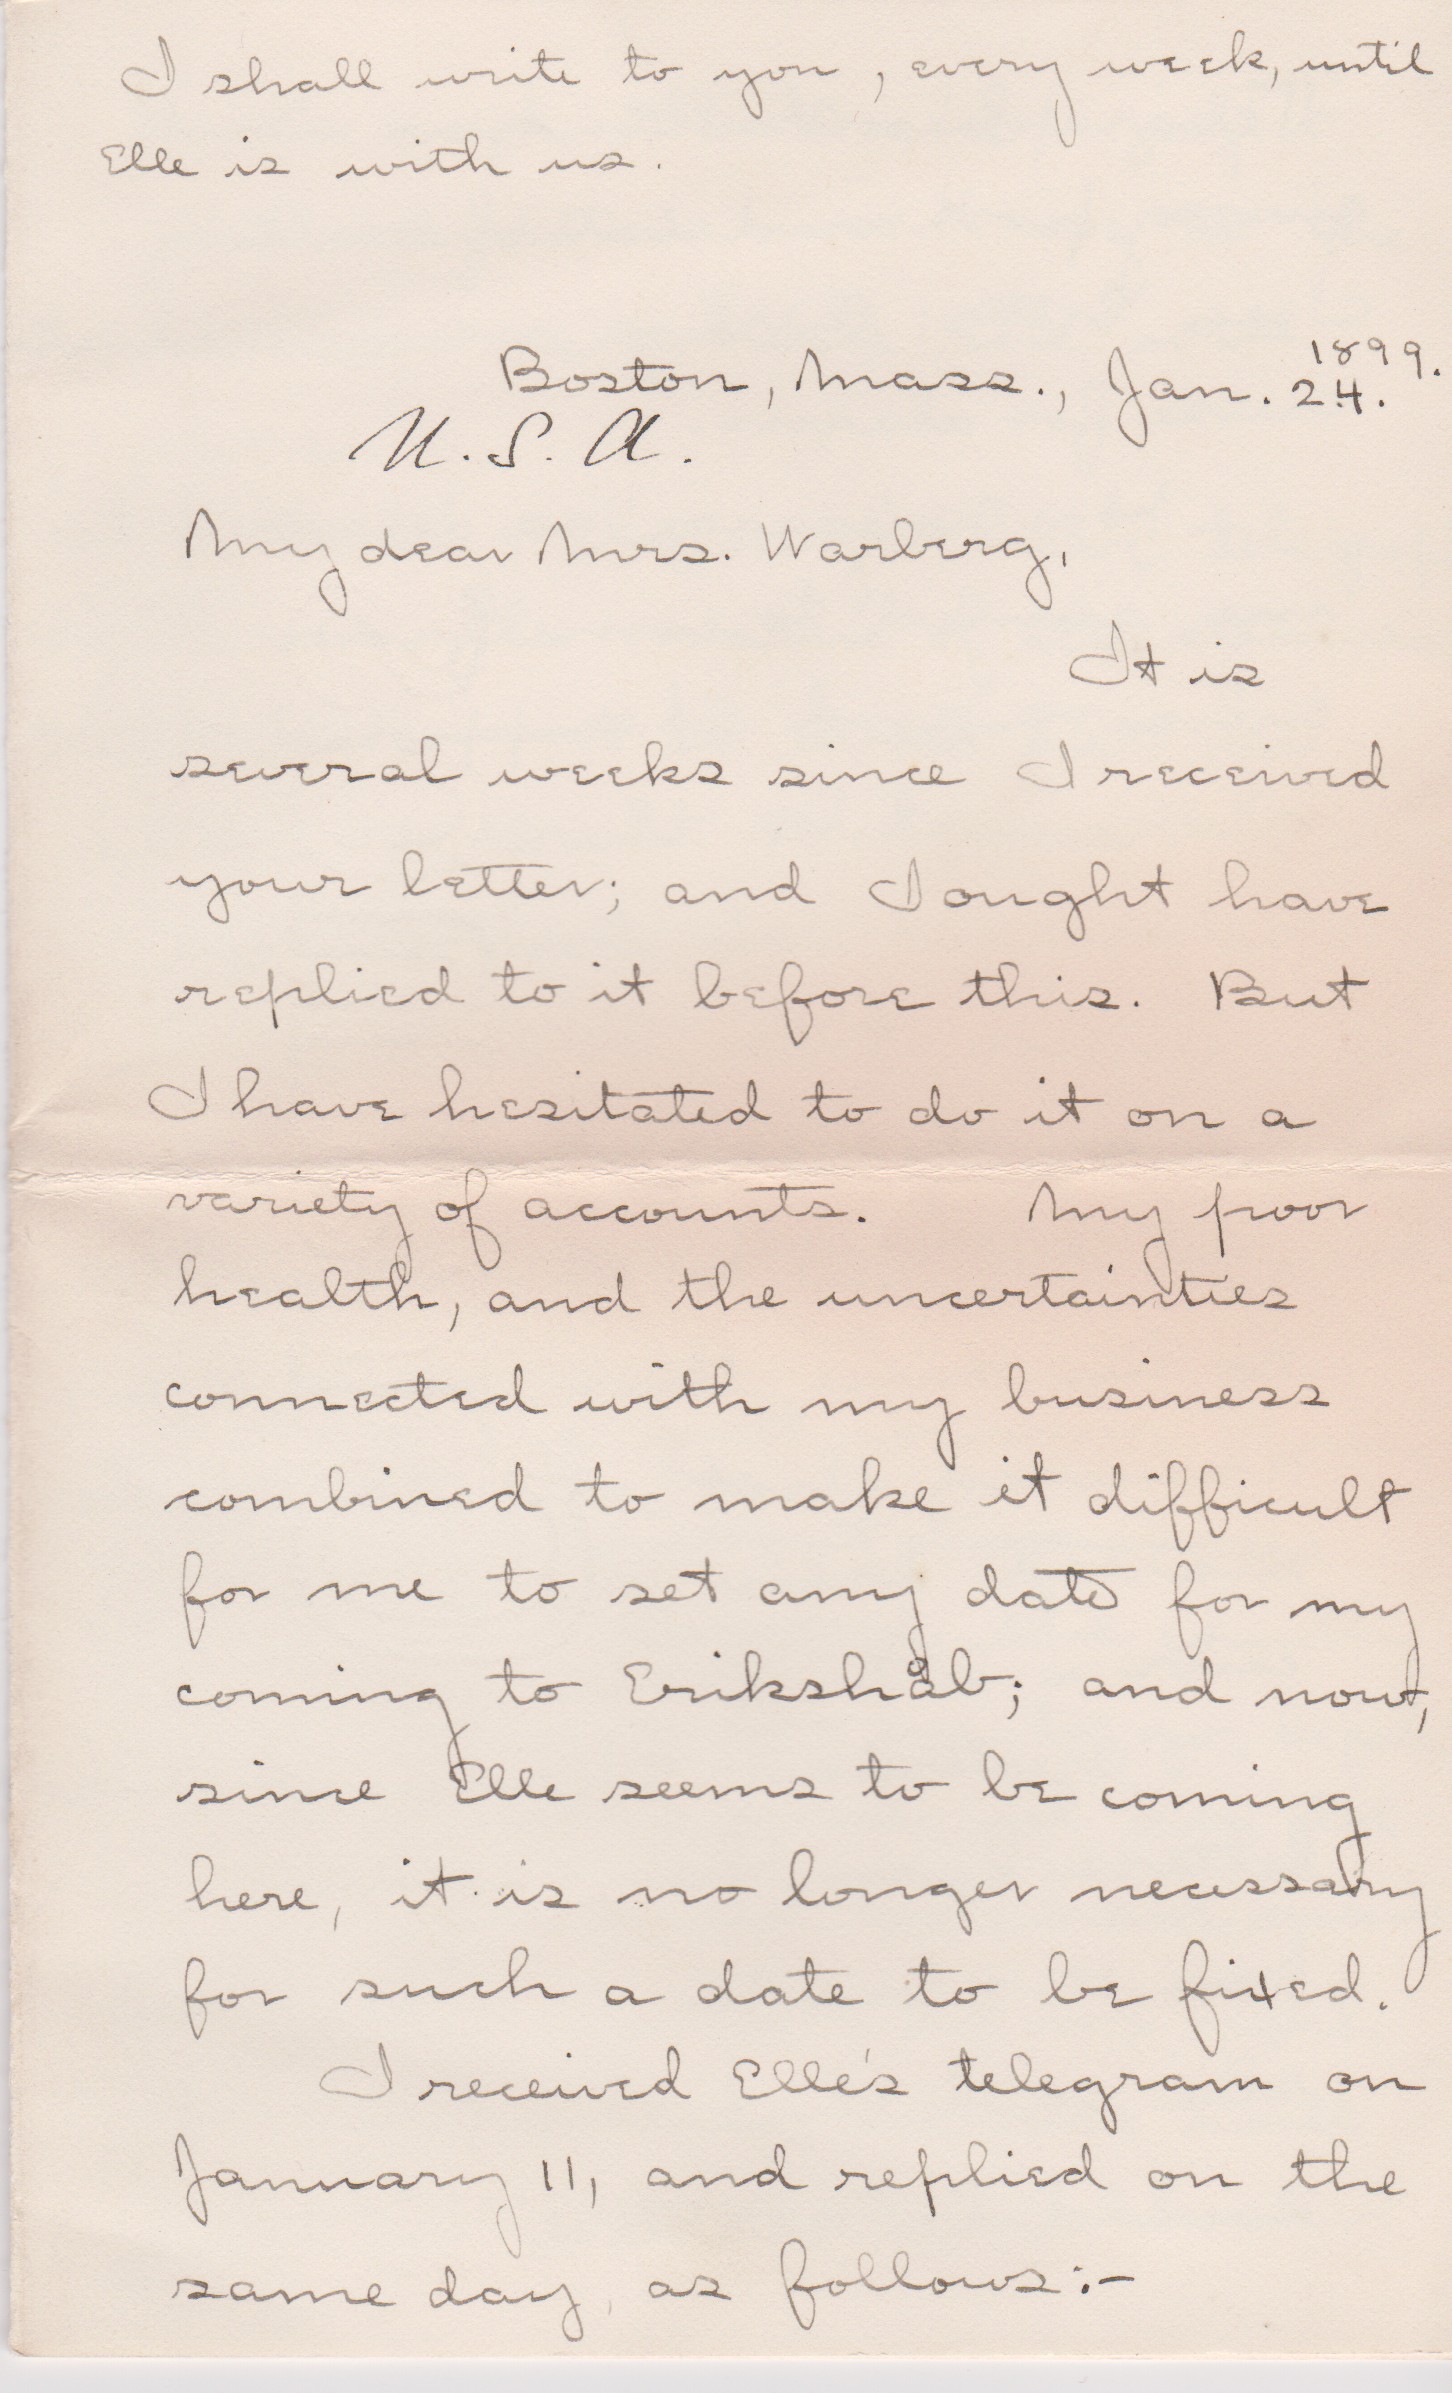 I shall write to you, every week, until
Elle is with us.
Boston, Mass., Jan. 24. 1899.
U. S. A.
My dear Mrs. Warberg,
It is
several weeks since I received
your letter; and I ought have
replied to it before this. But
I have hesitated to do it on a
variety of accounts. My poor
health, and the uncertainties
connected with my business
combined to make it difficult
for me to set any date for my
coming to Erikshåb; and now,
since Elle seems to be coming
here, it is no longer necessary
for such a date to be fixed.
I received Elle's telegram on
January 11, and replied on the
same day, as follows:-